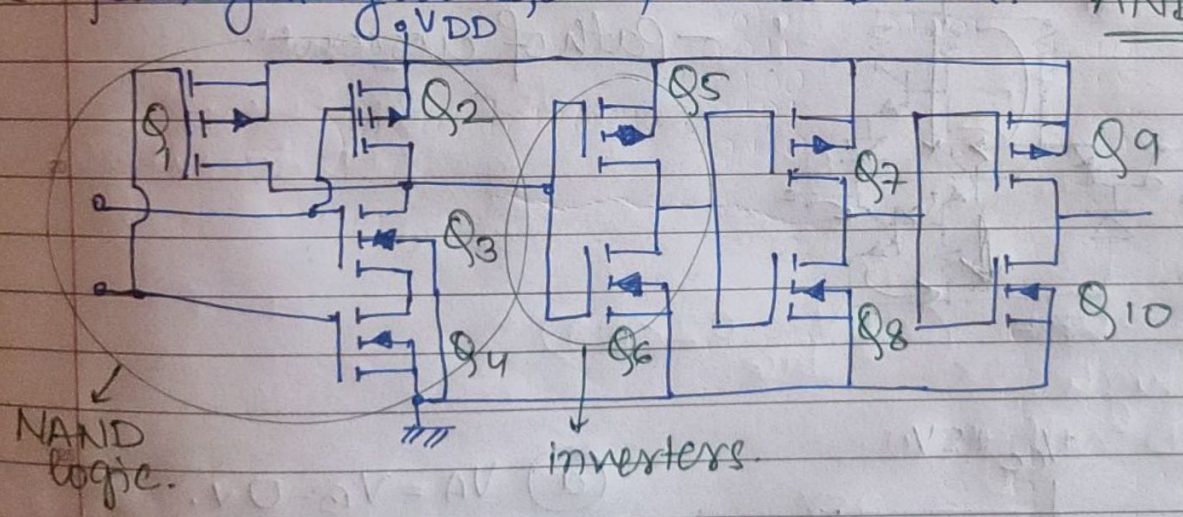 AND
VDD
Q1
Q2
Q3
Q4
Q5
Q6
Q7
Q8
Q9
Q10
NAND
logic.
inverters.